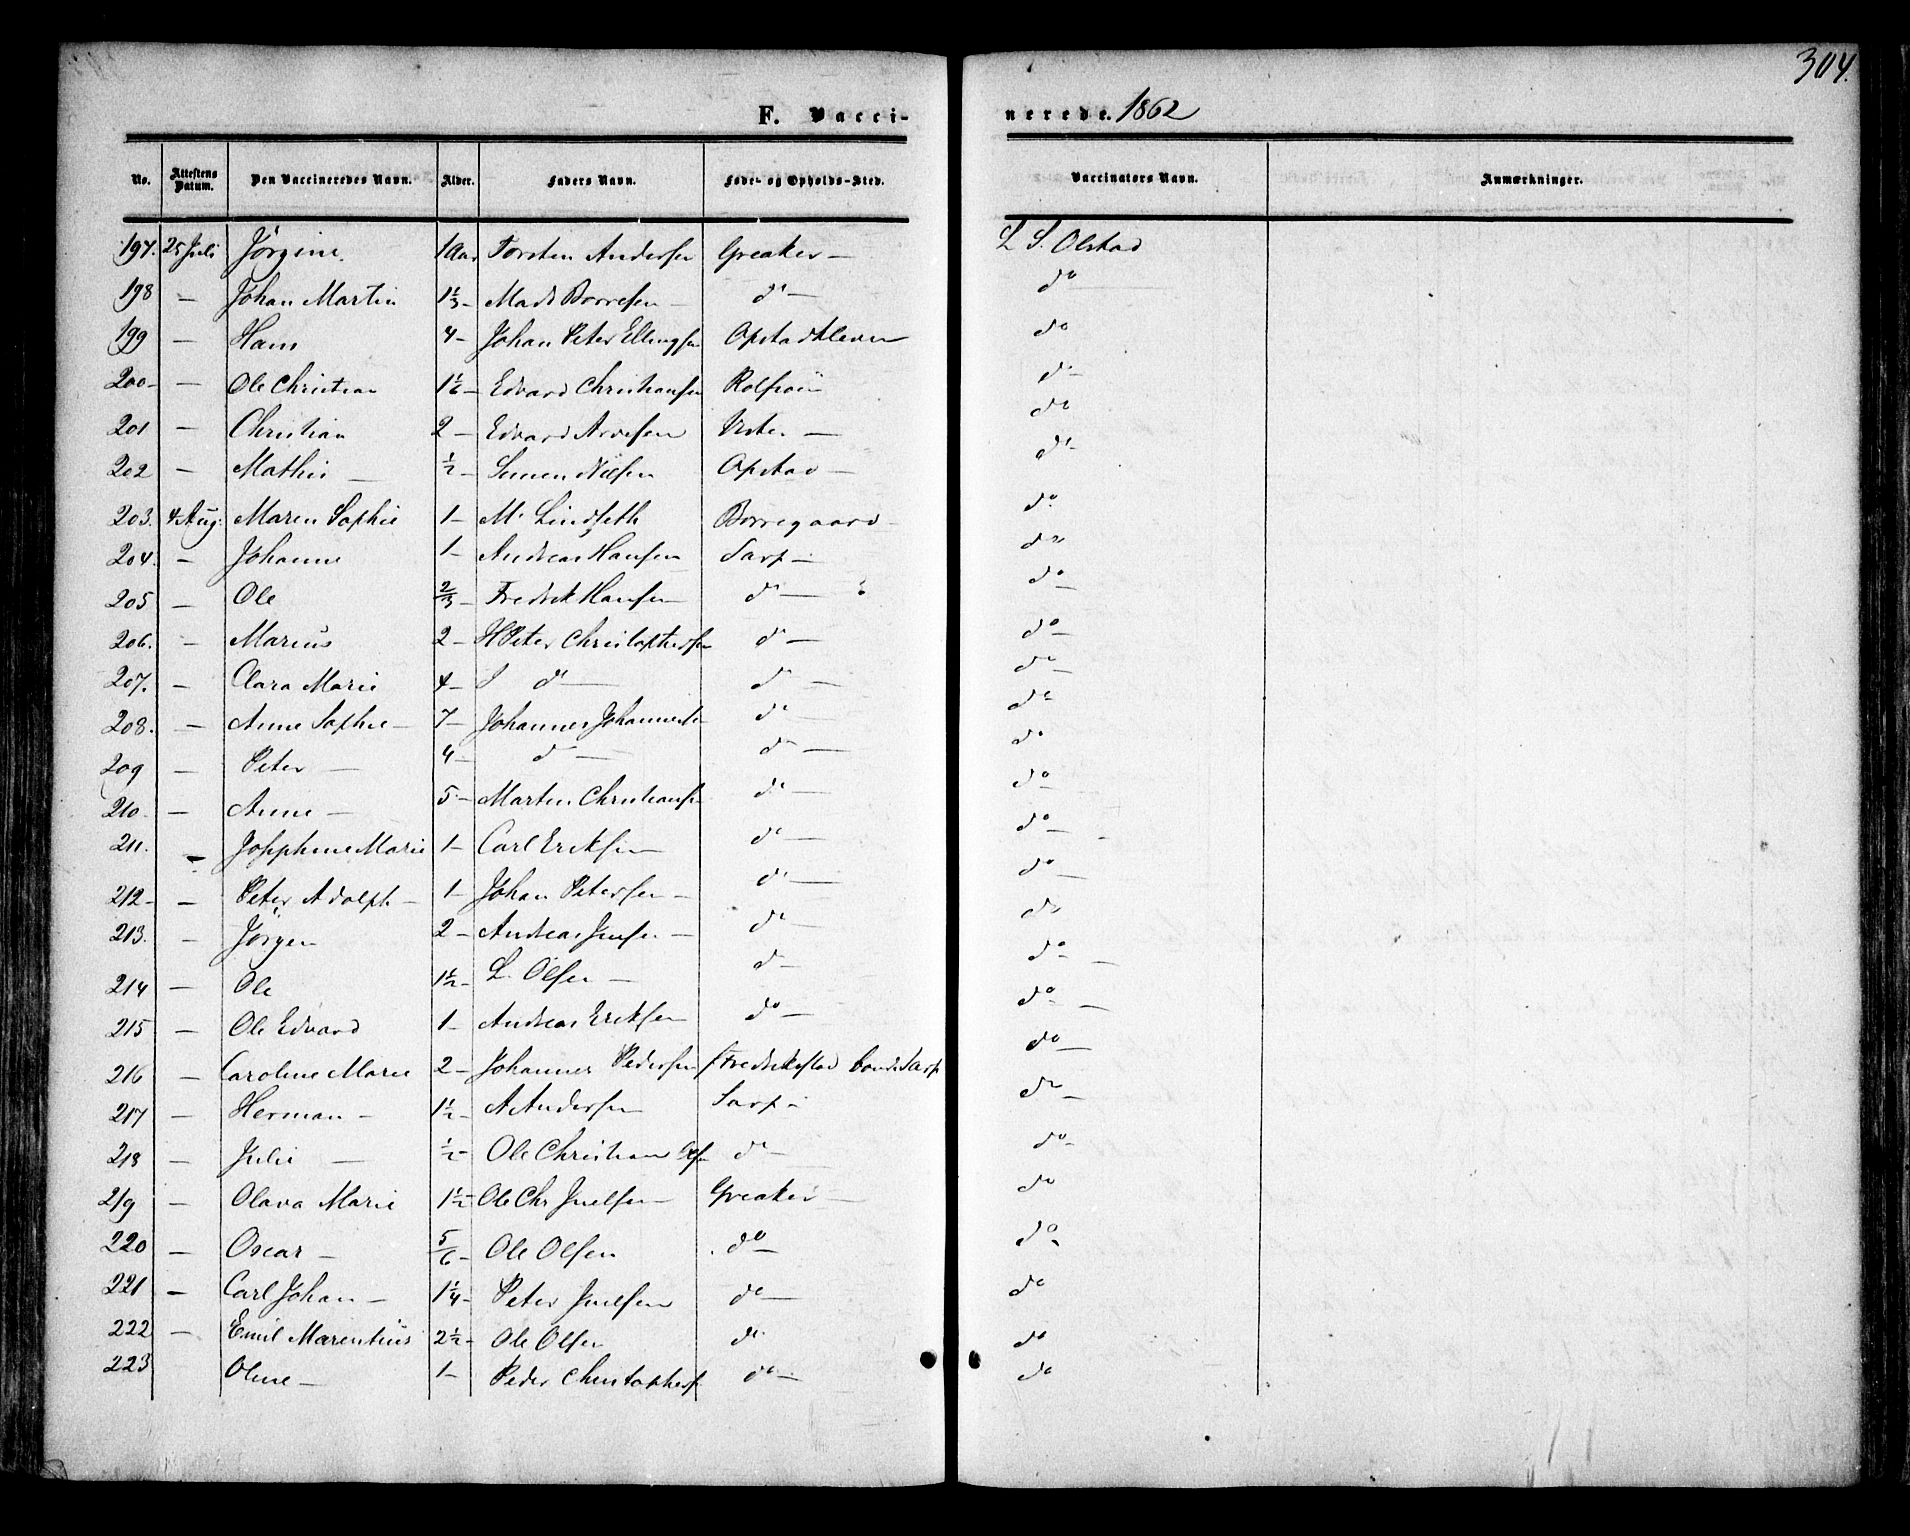 304.
F. Vaccinerede. 1862
No. Attestens Datum. Den Vaccineredes Navn. Alder. Faders Navn. Føde- og Opholds-Sted. Vaccinators Navn. Anmærkninger.
197. 25 Juli Jørgine. 1 Aar Torsten Andersen Greaker — L S. Olstad
198 — Johan Martin 1⅓ — Mads Borresen — do — do
199 — Hans 4 — Johan Peter Ellingsen Opstadkleven do
200 — — Ole Christian 1½ — Edvard Christiansen Rolfsøen do —
201 — Christian 2 — Edvard Arvesen — do
202 — Mathis — ½ — Simen Nilsen Opstad — do —
203. 4 Aug. Maren Sophie 1 — M. Lindseth Borregaard — do
204. — Johanne 1 — Andreas Hansen Sarp — do
205 — Ole ⅔ — Fredrik Hansen do — do —
206. — Marius 2 — H Peter Christophersen do — do —
207. — Clara Marie 4 — do — do — do —
208. — Anne Sophie — 7 — Johannes Johannesen do — do
209 — Peter — 4 — do — do — do
210. — Anne — 5 — Martin Christiansen do — do —
211. — Josephine Marie 1 — Carl Eriksen do — do —
212 — — Peter Adolph — 1 — Johan Petersen — do — do —
213. — Jørgen 2 — Andreas Jensen — do — do
214 — Ole 1½ — L. Olsen — do — do —
215 — Ole Edvard 1 — Andreas Eriksen do — do —
216 — Caroline Marie 2 — Johannes Pedersen f Fredrikstad boende Sarp do —
217 — Herman — 1½ — A Andersen Sarp — do —
218 — Julie — ½ — Ole Christian Olsen do — do —
219 — Olava Marie 1½ — Ole Chr Juelsen — Greaker — do
220 — Oscar — 5/6 — Ole Olsen do do
221 — Carl Johan — 1¼ — Peter Juelsen do — do
222 — Emil Marentius 2½ — Ole Olsen do do
223 Oline — 1 — Peder Christophers. do — do